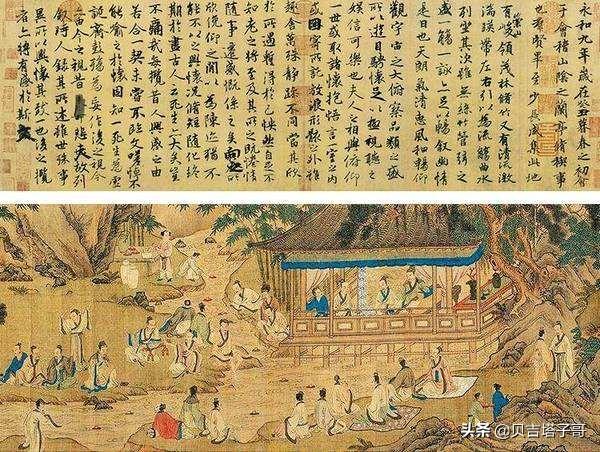 永和九年歲在癸丑暮春之初會
于會稽山陰之蘭亭脩稧事
也群賢畢至少長咸集此地
有崇山峻領茂林脩竹又有清流激
湍暎帶左右引以為流觴曲水
列坐其次雖無絲竹管弦之
盛一觴一詠亦足以暢敘幽情
是日也天朗氣清惠風和暢仰
觀宇宙之大俯察品類之盛
所以遊目騁懷足以極視聽之
娛信可樂也夫人之相與俯仰
一世或取諸懷抱悟言一室之內
或因寄所託放浪形骸之外雖
趣舍萬殊靜躁不同當其欣
於所遇暫得於己怏然自足不
知老之將至及其所之既惓情
隨事遷感慨係之矣向之所
欣俛仰之閒以為陳跡猶不
能不以之興懷況脩短隨化終
期於盡古人云死生亦大矣豈
不痛哉每攬昔人興感之由
若合一契未嘗不臨文嗟悼不
能喻之於懷固知一死生為虛
誕齊彭殤為妄作後之視今
亦由今之視昔悲夫故列
敘時人錄其所述雖世殊事
異所以興懷其致一也後之攬
者亦將有感於斯文
头条 @贝吉塔子哥